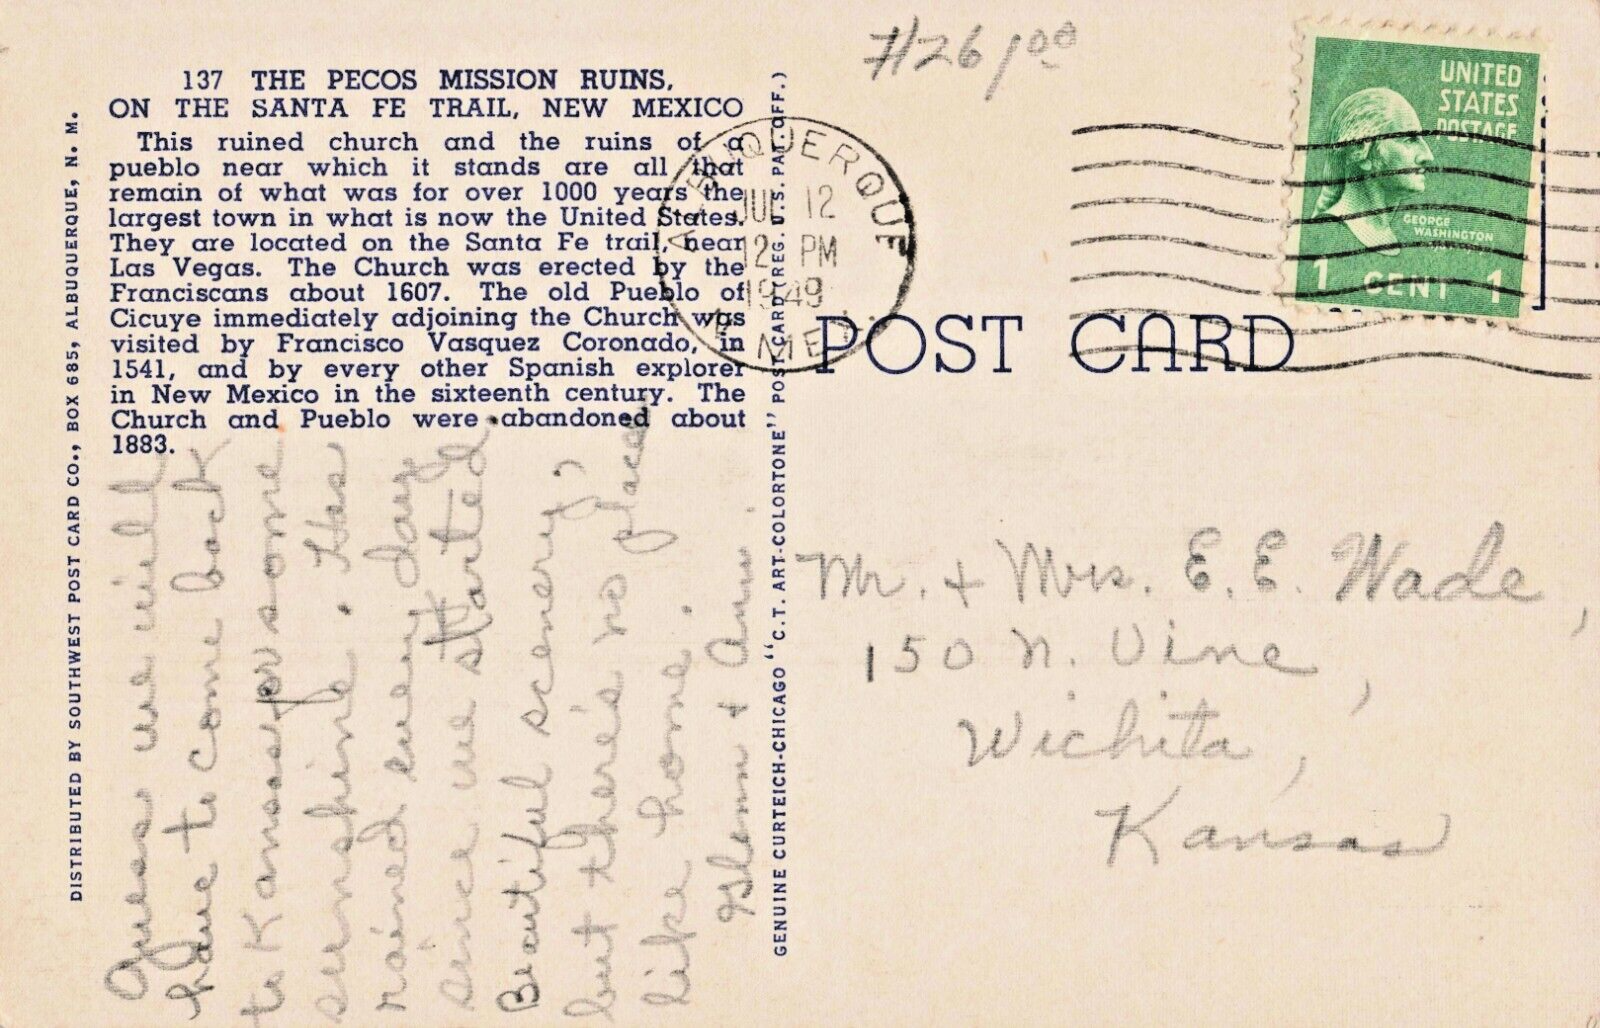 #26 1⁰⁰
137 THE PECOS MISSION RUINS,
ON THE SANTA FE TRAIL, NEW MEXICO
This ruined church and the ruins of a
pueblo near which it stands are all that
remain of what was for over 1000 years the
largest town in what is now the United States.
They are located on the Santa Fe trail, near
Las Vegas. The Church was erected by the
Franciscans about 1607. The old Pueblo of
Cicuye immediately adjoining the Church was
visited by Francisco Vasquez Coronado, in
1541, and by every other Spanish explorer
in New Mexico in the sixteenth century. The
Church and Pueblo were abandoned about
1883.
DISTRIBUTED BY SOUTHWEST POST CARD CO., BOX 685, ALBUQUERQUE, N. M.
Guess we will
have to come back
to Kansas for some
sunshine. Has
rained every day
since we started
Beautiful scenery,
but there's no place
like home.
Glenn & Ann.
GENUINE CURTEICH-CHICAGO "C.T. ART-COLORTONE" POST CARD (REG. U.S. PAT. OFF.)
ALBUQUERQUE
JUL 12
12 PM
1949
N MEX.
UNITED
STATES
POSTAGE
GEORGE
WASHINGTON
1 CENT 1
POST CARD
Mr. + Mrs. E. E. Wade,
150 N. Vine,
Wichita,
Kansas